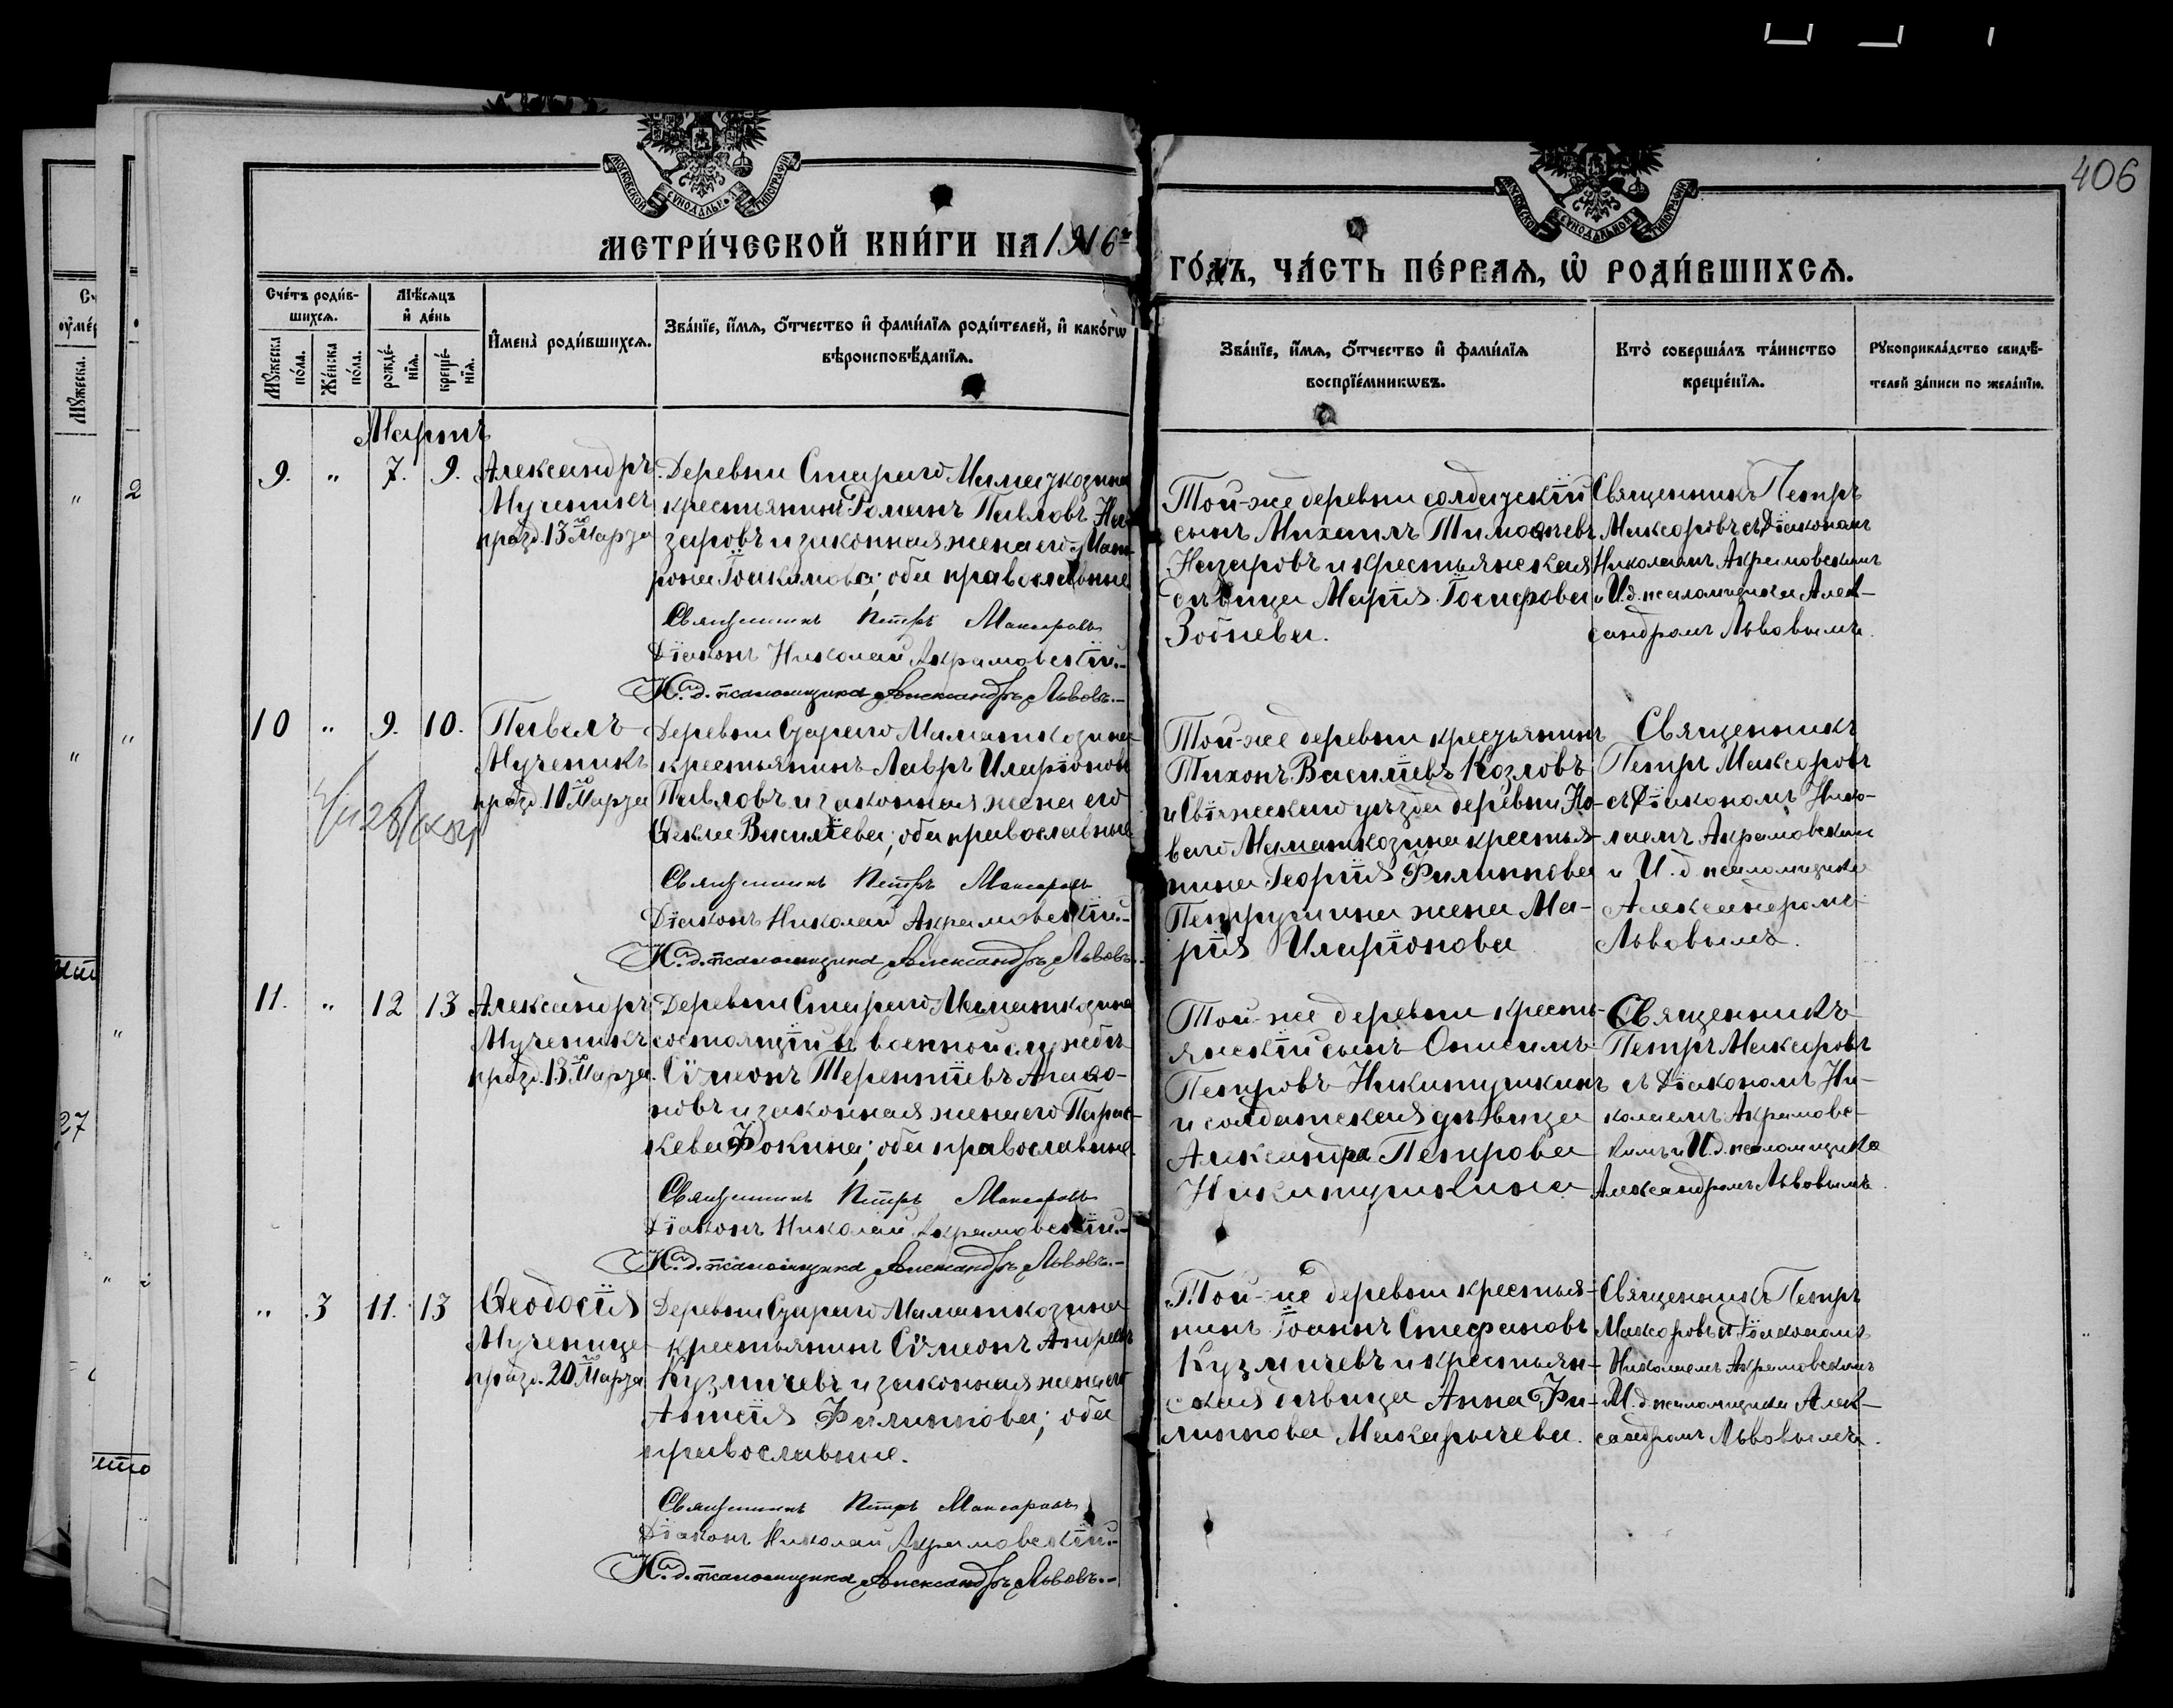 406
МОСКОВСКОЙ СѴНОДАЛЬНОЙ ТИПОГРАФІИ
МОСКОВСКОЙ СѴНОДАЛЬНОЙ ТИПОГРАФІИ
МЕТРИ́ЧЕСКОЙ КНИ́ГИ НА 1916й
ГО́ДЪ, ЧА́СТЬ ПЕ́РВАѦ, Ѡ҆ РОДИ́ВШИХСѦ.
Сче́тъ роди́в-
шихсѧ.
Мꙋ́жеска по́ла.
Же́нска по́ла.
Мѣ́сѧцъ
и҆ де́нь
рожде́-
нїѧ.
креще́-
нїѧ.
И҆мена̀ роди́вшихсѧ.
Зва́нїе, и҆́мѧ, ѻ҆́тчество и҆ фами́лїѧ роди́телей, и҆ како́гѡ
вѣроисповѣ́данїѧ.
Зва́нїе, и҆́мѧ, ѻ҆́тчество и҆ фами́лїѧ
воспрїе́мникѡвъ.
Кто̀ соверша́лъ та́инство
креще́нїѧ.
Рꙋкоприкла́дство свидѣ́-
телей за́писи по жела́нїю.
Мартъ
9. " 7. 9.
Александръ
Мученикъ
празд. 13го Марта
Деревни Стараго Маматкозина
крестьянинъ Романъ Павловъ На-
заровъ и законная жена его Мат-
рона Іоакимова; оба православные
Священникъ Петръ Максаровъ
Діаконъ Николай Акрамовскій.-
И. д. псаломщика Александръ Львовъ.-
Той-же деревни солдатскій
сынъ Михаилъ Тимофеевъ
Назаровъ и крестьянская
дѣвица Марія Іосифова
Зобнева.
Священникъ Петръ
Максаровъ съ Діакономъ
Николаемъ Акрамовскимъ
и И. д. псаломщика Алек-
сандромъ Львовымъ.
10 " 9. 10.
Павелъ
Мученикъ
празд. 10го Марта
Деревни Стараго Маматкозина
крестьянинъ Лавръ Иларіоновъ
Павловъ и законная жена его
Ѳекла Василіева; оба православные
Священникъ Петръ Максаровъ
Діаконъ Николай Акрамовскій.-
И. д. псаломщика Александръ Львовъ.
Той-же деревни крестьянинъ
Тихонъ Василіевъ Козловъ
и Свіяжскаго уѣзда деревни Но-
ваго Маматкозина крестья-
нина Георгія Филиппова
Петрушина жена Ма-
рія Иларіонова
Священникъ
Петръ Максаровъ
съ Діакономъ Нико-
лаемъ Акрамовским
и И. д. псаломщика
Александромъ
Львовымъ.
11. " 12 13
Александръ
Мученикъ
празд. 13го Марта.
Деревни Стараго Маматкозина
состоящій въ военной службѣ
Сѵмеонъ Терентіевъ Агафо-
новъ и законная жена его Парас-
кева Фокина; оба православные.
Священникъ Петръ Максаровъ
Діаконъ Николай Акрамовскій.-
И. д. псаломщика Александръ Львовъ.-
Той-же деревни кресть-
янскій сынъ Онисимъ
Петровъ Никитушкинъ
и солдатская дѣвица
Александра Петрова
Никитушкина
Священникъ
Петръ Максаровъ
съ Діакономъ Ни-
колаемъ Акрамовс-
кимъ и И. д. псаломщика
Александромъ Львовымъ.
" 3 11. 13
Ѳеодосія
Мученица
празд. 20го Марта
Деревни Стараго Маматкозина
крестьянинъ Сѵмеонъ Андреевъ
Кузмичевъ и законная жена его
Анисія Филиппова; оба
православные.
Священникъ Петръ Максаровъ
Діаконъ Николай Акрамовскій.-
И. д. псаломщика Александръ Львовъ.-
Той-же деревни крестья-
нинъ Іоаннъ Стефановъ
Кузмичевъ и крестьян-
ская дѣвица Анна Фи-
липпова Макарычева.
Священникъ Петръ
Максаровъ съ Діакономъ
Николаемъ Акрамовскимъ
и И. д. псаломщика Алек-
сандромъ Львовымъ.